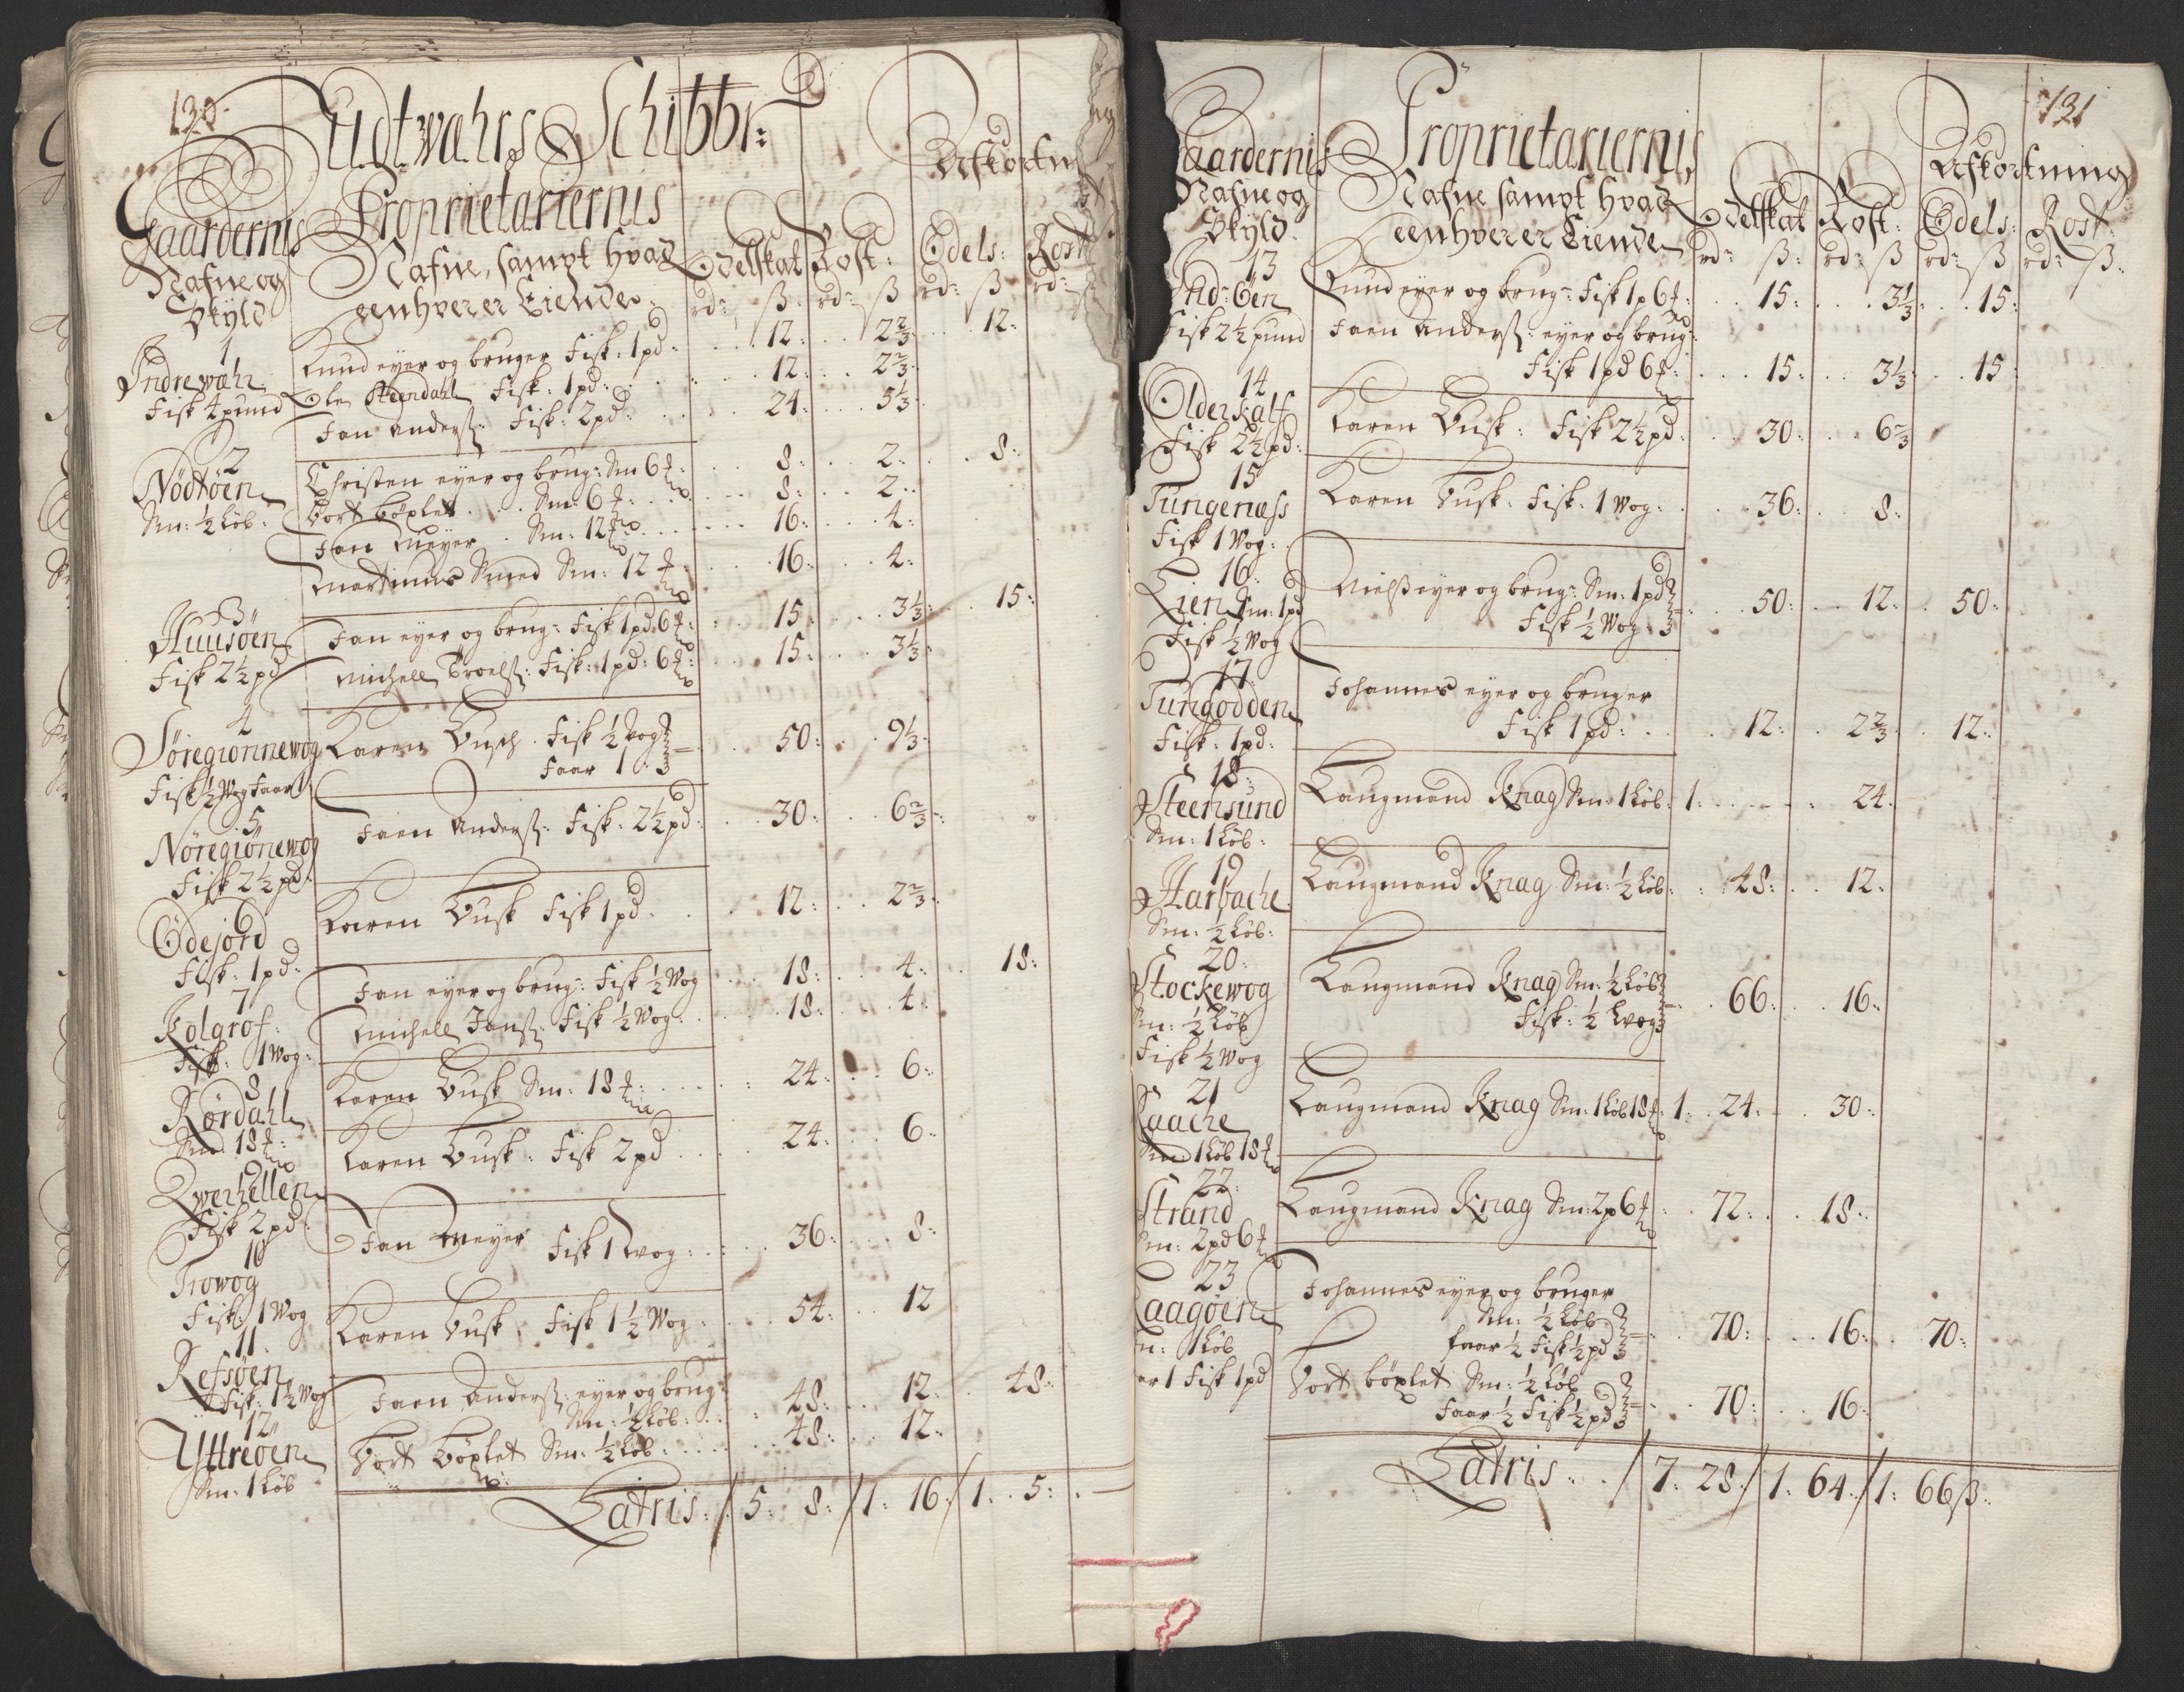 130.
Udtwahrs Schibbr:
Gaardernis
Nafne og
Skyld
Proprietariernis
Nafne, sampt hvad
eenhver er Eiende
Odelskat
rd: ß.
Rost:
rd: ß
Afkortn
Odels:
rd: ß
Rost
rd:
1
Indrewahr
Fisk 4 pund
Knud eyer og bruger Fisk. 1 pd: 12: 2⅔ 12:
Ole Steendahl Fisk: 1 pd: 12: 2⅔
Jan Anderß: Fisk: 2 pd: 24: 5⅓
2
Nödtöen
Sm: ½ Löb:
Christen eyer og brug: Sm 6 8: 2: 8:
Bort böxlet . . Sm: 6 8: 2:
Jan Meyer . Sm: 12 16: 4:
Martinus Smed Sm: 12 16: 4:
3
Huusöen
Fisk 2½ pd
Jan eyer og brug: Fisk 1 pd 6 15: 3⅓ 15:
Michell Troelß: Fisk: 1 pd: 6 15: 3⅓
4
Söregionnewog
Fisk ½ Wog Faar 1
Karen Busch . Fisk ½ Wog
Faar 1 50: 9⅓
5
Nöregiönewog
Fisk 2½ pd:
Jaen Anderß: Fisk: 2½ pd: 30: 6⅔
6
Ödejord
Fisk: 1 pd:
Karen Busk Fisk 1 pd: 12: 2⅔
7
Kolgrof:
Fisk: 1 Wog:
Jan eyer og brug: Fisk ½ Wog 18: 4: 18:
Michell Janß: Fisk ½ Wog: 18: 4:
8
Rördahl
Sm: 18
Karen Busk Sm: 18 24: 6:
9
Qwerhellen
Fisk 2 pd:
Karen Busk: Fisk 2 pd 24: 6:
10
Trowog
Fisk: 1 Wog
Jan Meyer Fisk 1 Wog: 36: 8:
11.
Refsöen
Fisk: 1½ Wog
Karen Busk, Fisk 1½ Wog: 54: 12
12
Yttreöen
Sm: 1 Löb
Jaen Anderß: eyer og brug:
Sm: ½ Löb: 48: 12: 48:
Bort böxlet Sm: ½ Löb: 48: 12:
Latris: / 5: 8: / 1: 16: / 1: 5:
131
aardernis
Nafne og
Skyld.
Proprietariernis
Nafne sampt hvad
eenhver er Eiende
Odelskat
rd: ß:
Rost:
rd: ß
Afkortning
Odels:
rd: ß
Rost:
rd: ß.
13
Ind: Öen
Fisk 2½ pund
Knud eyer og brug: Fisk 1 p 6 15: 3⅓ 15:
Jaen Anderß: eyer og brug:
Fisk 1 pd 6 15: 3⅓ 15:
14
Olderkalf
Fisk 2½ pd:
Karen Busk: Fisk 2½ pd: 30: 6⅔
15
Tungenæss
Fisk 1 Wog:
Karen Busk: Fisk: 1 Wog: 36: 8:
16:
Lien Sm: 1 pd
Fisk ½ Wog
Nielß eyer og brug: Sm: 1 pd
Fisk ½ Wog: 50: 12: 50:
17
Tungodden
Fisk: 1 pd:
Johannes eyer og bruger
Fisk 1 pd: 12: 2⅔ 12:
18:
Steensund
Sm: 1 Löb:
Laugmand Knag Sm: 1 Löb: 1: 24:
19
Harbache
Sm: ½ Löb:
Laugmand Knag Sm: ½ Löb: 48: 12:
20:
Stockewog
Sm: ½ Löb
Fisk ½ Wog
Laugmand Knag Sm: ½ Löb
Fisk: ½ Wog 66: 16:
21
Kaache
Sm: 1 Löb 18
Laugmand Knag Sm: 1 Löb 18: 1: 24: 30:
22:
Strand
Sm: 2 pd 6
Laugmand Knag Sm: 2 p 6 72: 18:
23
Laagöen
m: 1 Löb
ar 1 Fisk 1 pd
Johannes eyer og bruger
Sm: ½ Löb
faar ½ Fisk ½ pd 70: 16: 70:
Bort böxlet Sm: ½ Löb
Faar ½ Fisk ½ pd 70: 16:
Latris: / 7: 28: / 1: 64: / 1: 66 ß: